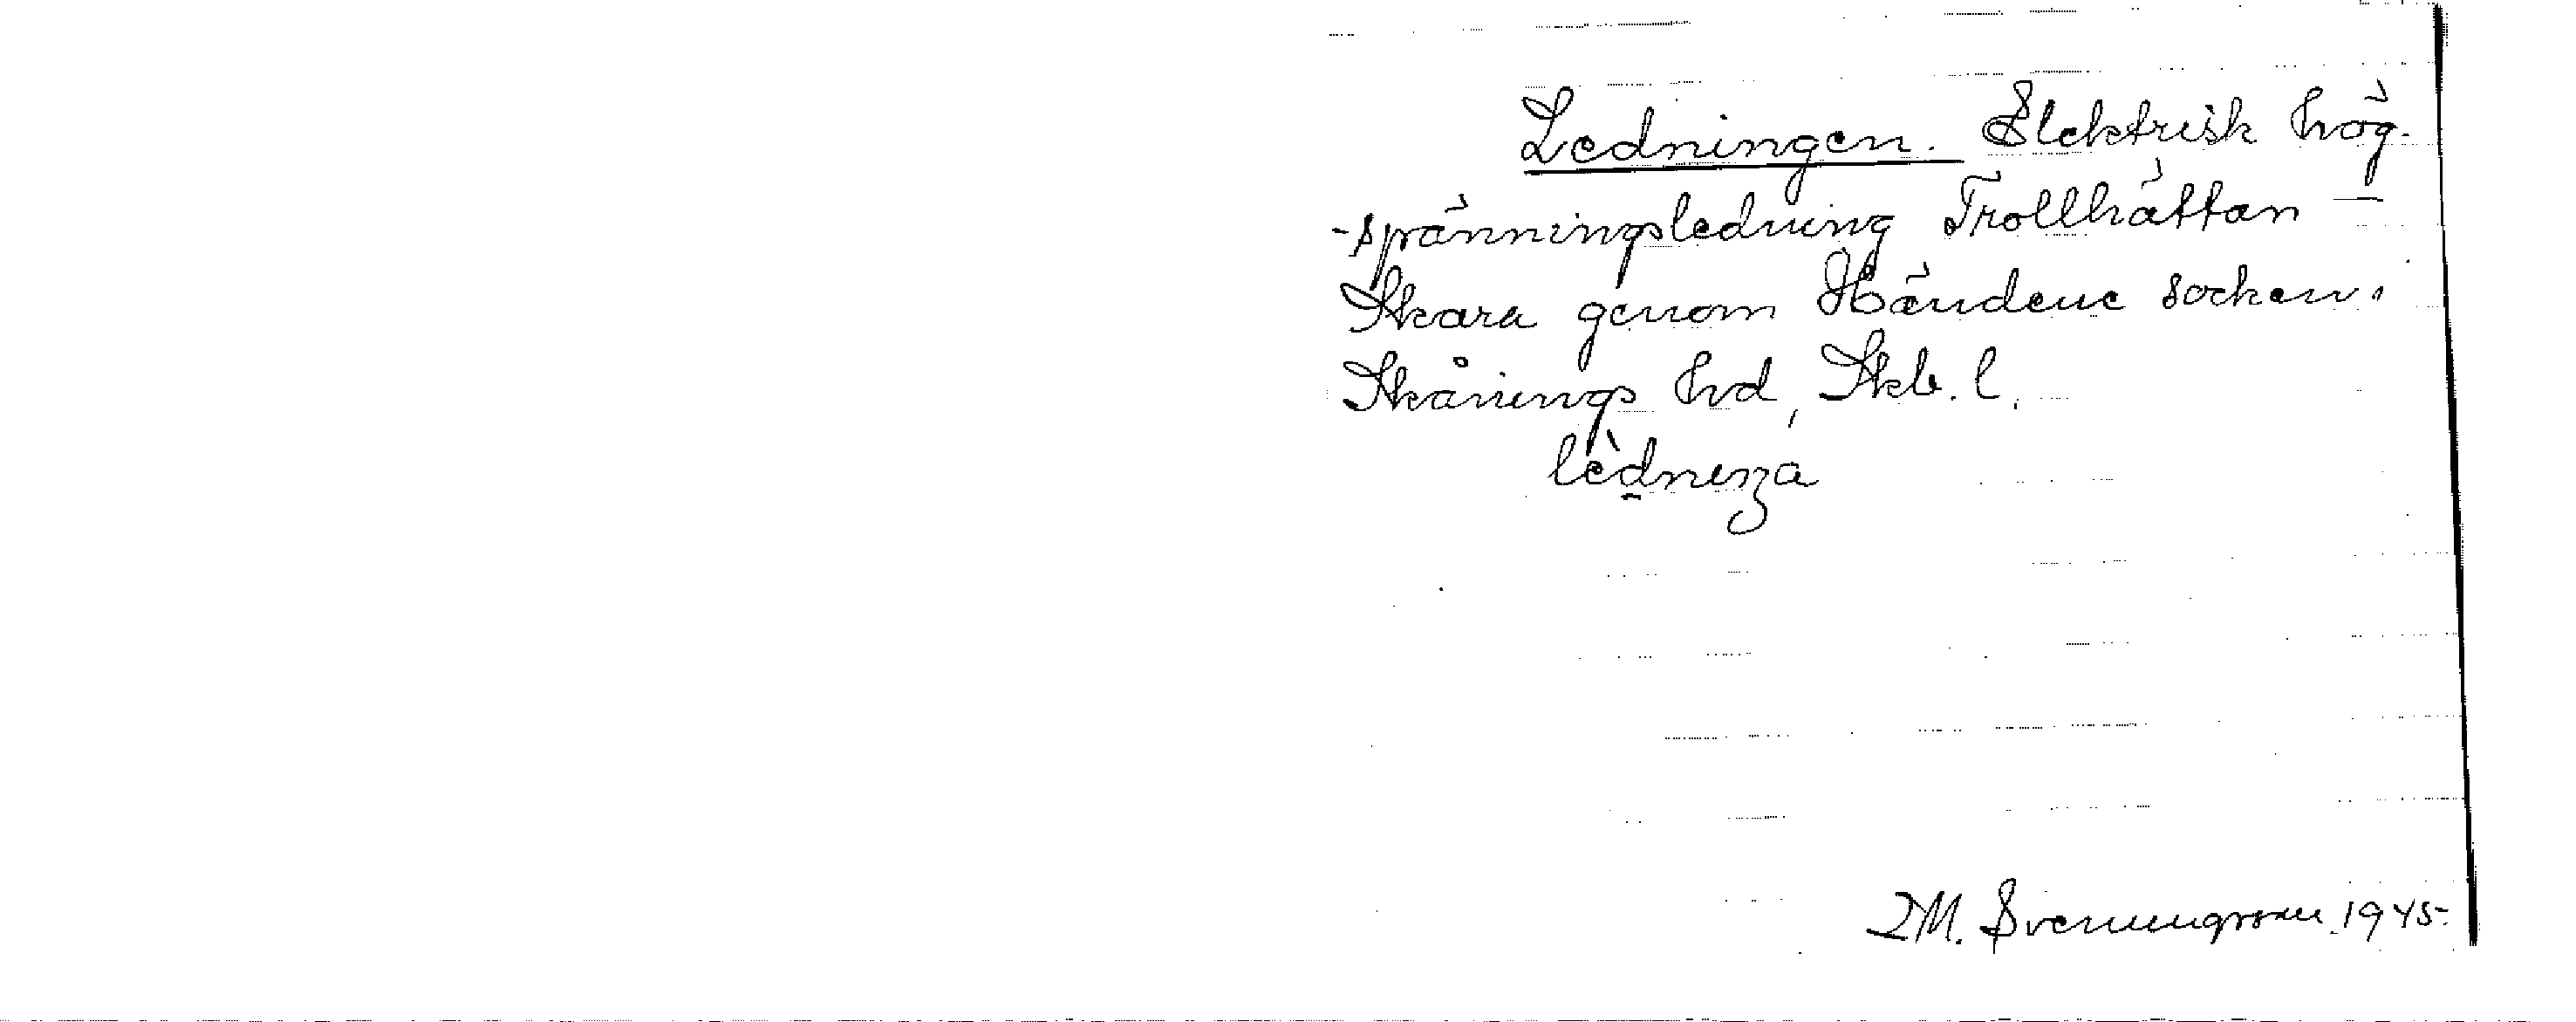 Ledningen. Elektrisk hög-
-spänningsledning Trollhättan —
Skara genom Händene socken,
Skånings hd, Skb. l.
1945.